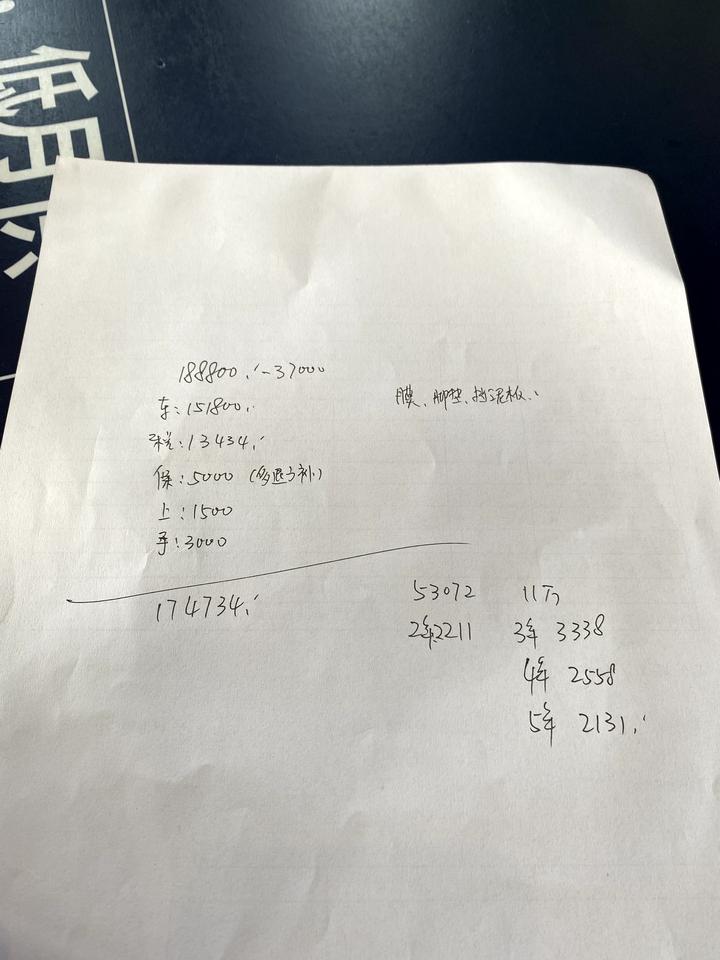 低月
188800.-37000
车:151800.
税:13434.
保:5000 (多退少补)
上:1500
手:3000
174734.
膜、脚垫、挡泥板、
53072 11万
2年2211 3年 3338
4年 2558
5年 2131.